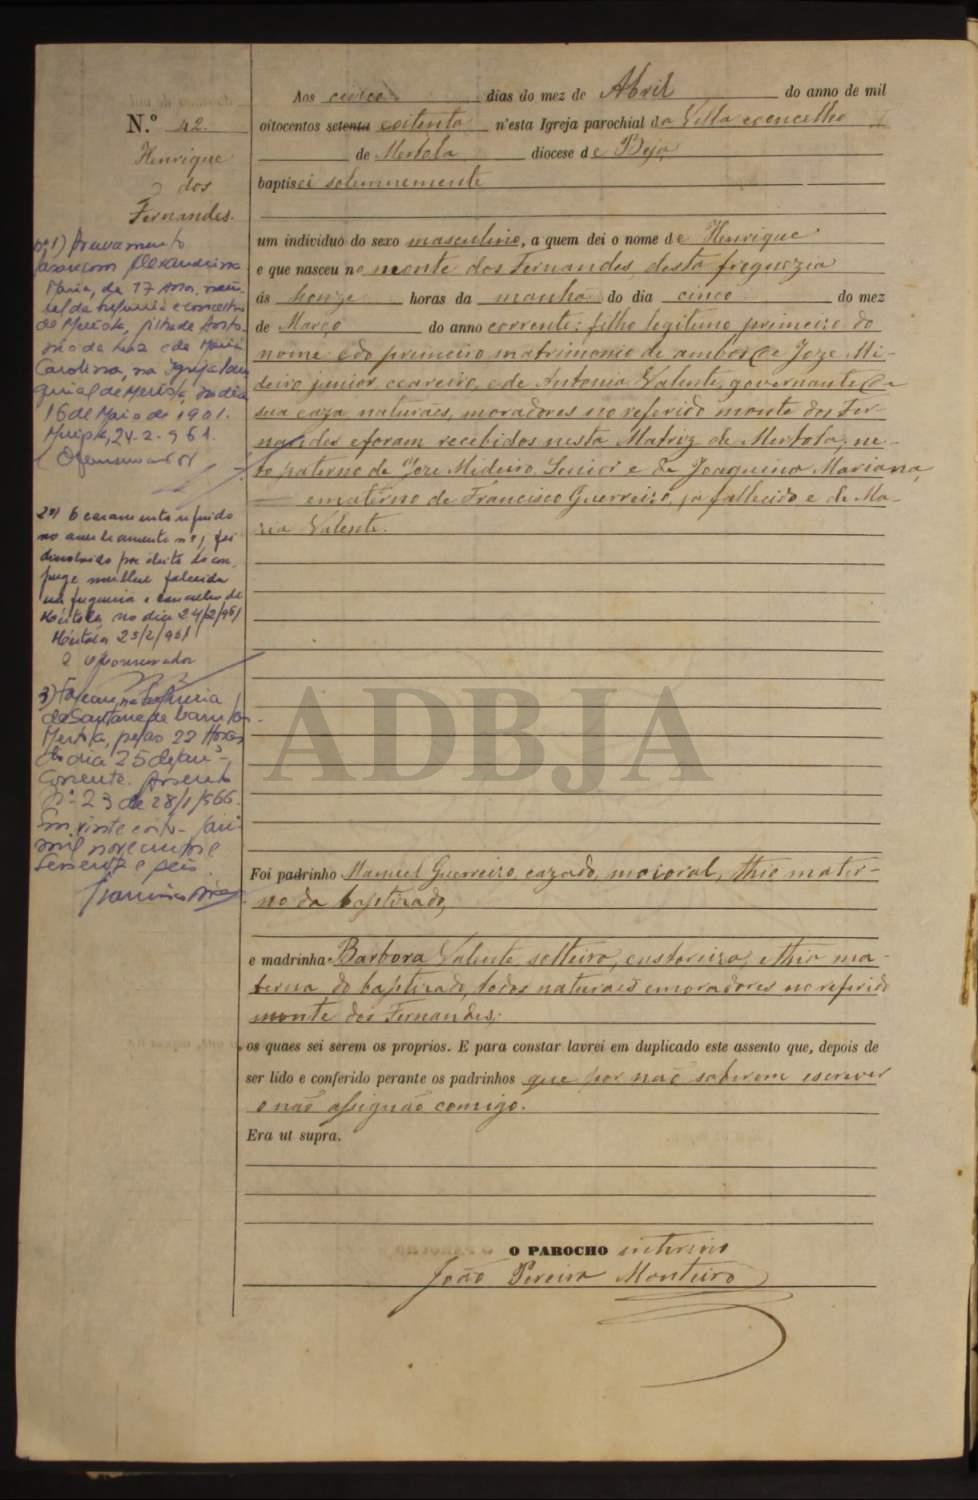 N.º 42.
Henrique
dos
Fernandes.
Aos cinco dias do mez de Abril do anno de mil
oitocentos setenta oitenta n'esta Igreja parochial da Villa e concelho
de Mertola diocese de Beja
baptisei solemnemente
um individuo do sexo masculino, a quem dei o nome de Henrique
e que nasceu no monte dos Fernandes, desta freguezia
ás honze horas da manhã do dia cinco do mez
de Março do anno corrente: filho legitimo primeiro do
nome e do primeiro matrimonio de ambos de Joze Mi-
deiro junior, ceareiro, e de Antonia Valente, governante de
sua caza naturaes, moradores no referido monte dos Fer-
nandes e foram recebidos nesta Matriz de Mertola; ne-
to paterno de Joze Mideiro, Senior e de Joaquina Mariana,
e materno de Francisco Guerreiro, ja fallecido e de Ma-
ria Valente.
Foi padrinho Manuel Guerreiro, cazado, maioral, thio mater-
no do baptizado,
e madrinha Barbora Valente, solteira, custureira, e thia ma-
terna do baptizado, todos naturaes e moradores no referido
monte dos Fernandes;
os quaes sei serem os proprios. E para constar lavrei em duplicado este assento que, depois de
ser lido e conferido perante os padrinhos que por não saberem escrever
o não assignão comigo.
Era ut supra.
O PAROCHO interino
João Pereira Monteiro
nº 1) casamento
Alexandrina
Maria, de 17 anos, natu-
ral da freguesia e concelho
de Mertola, filha de Anto-
nio da Luz e de Maria
Carolina, na Igreja Paro
quial de Mertola, no dia
16 de Maio de 1901.
24-2-961.
2º) O casamento referido
no averbamento nº 1, foi
dissolvido por óbito do con
juge mulher falecida
na freguesia e concelho de
Mértola no dia 24/2/961
Mértola 25/2/961
O
3) Faleceu na freguesia
de Santana de Cambas
Mertola, pelas 22 horas
do dia 25 de Jan.
Corrente. Assento
nº 23 de 28/1/966.
Em vinte e oito Jan.
mil novecentos e
sessenta e seis.
ADBJA